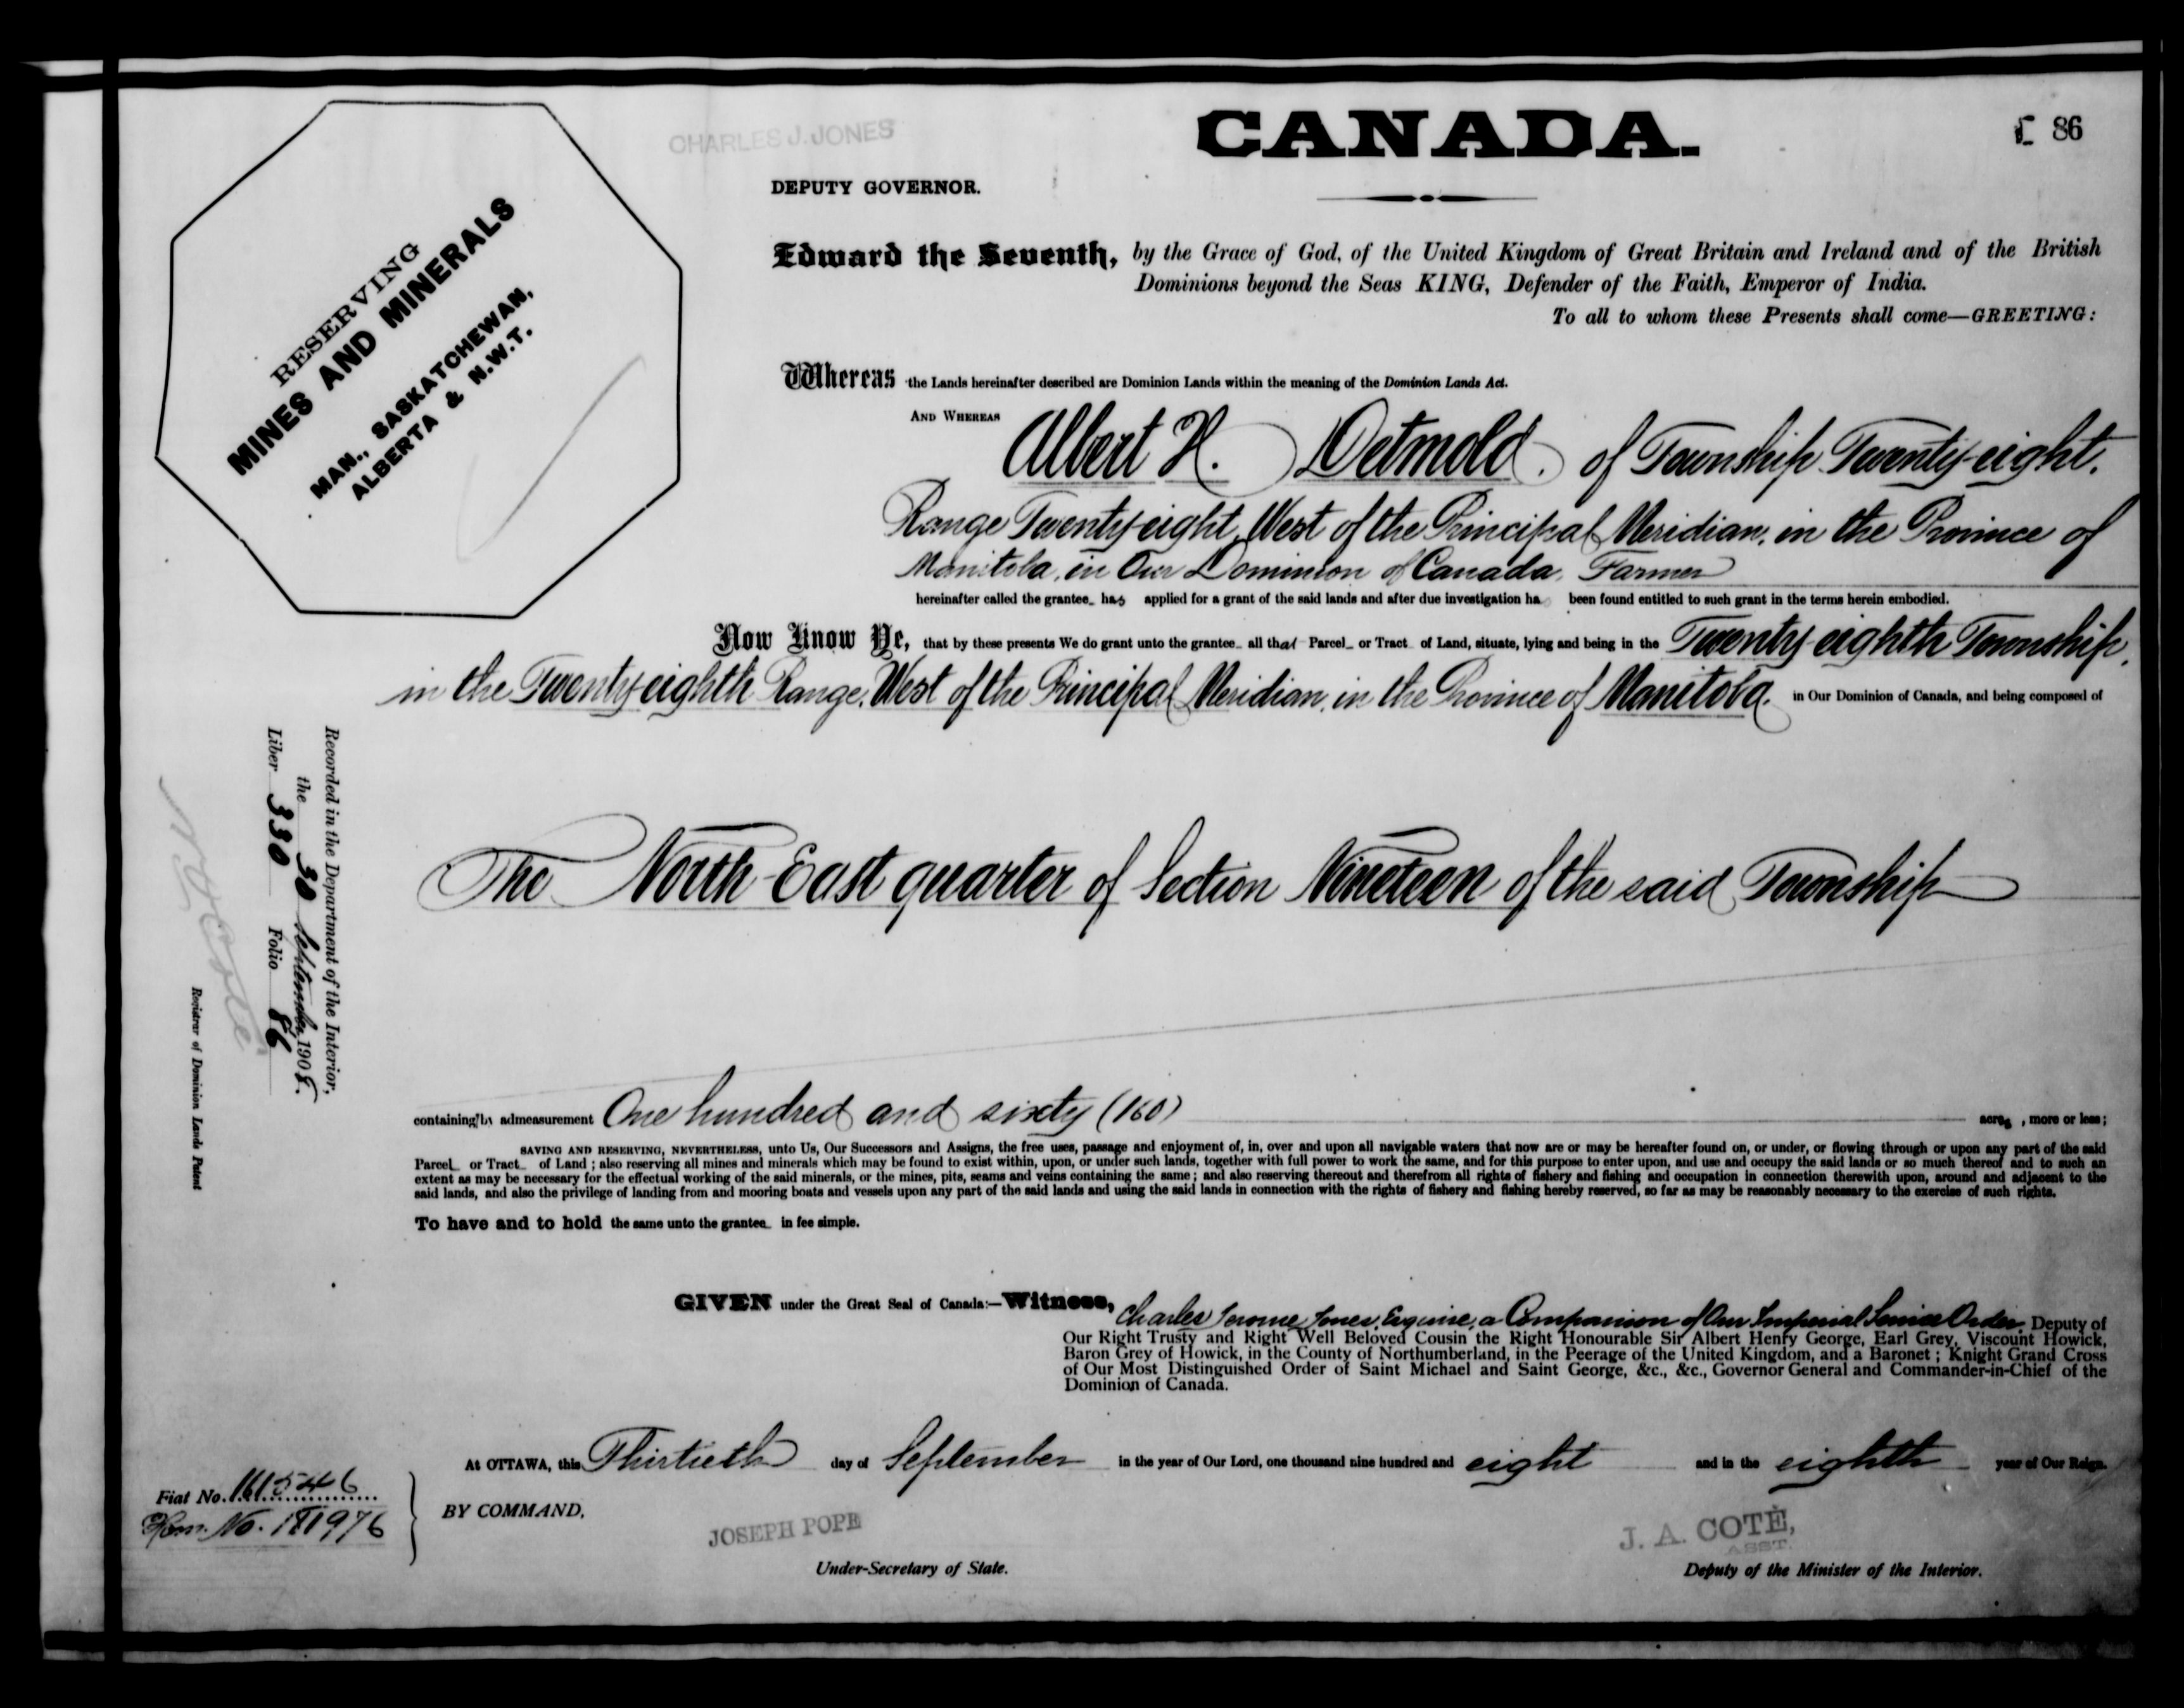 CHARLES J. JONES
CANADA.
86
DEPUTY GOVERNOR.
RESERVING
MINES AND MINERALS
MAN., SASKATCHEWAN,
ALBERTA & N.W.T.
Edward the Seventh, by the Grace of God, of the United Kingdom of Great Britain and Ireland and of the British
Dominions beyond the Seas KING, Defender of the Faith, Emperor of India.
To all to whom these Presents shall come—GREETING:
Whereas the Lands hereinafter described are Dominion Lands within the meaning of the Dominion Lands Act.
AND WHEREAS Albert H. Detmold. of Township Twenty-eight,
Range Twenty-eight, West of the Principal Meridian, in the Province of
Manitoba, in Our Dominion of Canada, Farmer
hereinafter called the grantee has applied for a grant of the said lands and after due investigation ha been found entitled to such grant in the terms herein embodied.
Now Know Ye, that by these presents We do grant unto the grantee all that Parcel or Tract of Land, situate, lying and being in the Twenty-eighth Township,
in the Twenty-eighth Range, West of the Principal Meridian, in the Province of Manitoba. in Our Dominion of Canada, and being composed of
The North-East quarter of Section Nineteen of the said Township
containing by admeasurement One hundred and sixty (160) acres, more or less;
SAVING AND RESERVING, NEVERTHELESS, unto Us, Our Successors and Assigns, the free uses, passage and enjoyment of, in, over and upon all navigable waters that now are or may be hereafter found on, or under, or flowing through or upon any part of the said
Parcel or Tract of Land; also reserving all mines and minerals which may be found to exist within, upon, or under such lands, together with full power to work the same, and for this purpose to enter upon, and use and occupy the said lands or so much thereof and to such an
extent as may be necessary for the effectual working of the said minerals, or the mines, pits, seams and veins containing the same; and also reserving thereout and therefrom all rights of fishery and fishing and occupation in connection therewith upon, around and adjacent to the
said lands, and also the privilege of landing from and mooring boats and vessels upon any part of the said lands and using the said lands in connection with the rights of fishery and fishing hereby reserved, so far as may be reasonably necessary to the exercise of such rights.
To have and to hold the same unto the grantee in fee simple.
Recorded in the Department of the Interior,
the 30 September, 1908.
Liber 330 Folio 86
N O Coté
Registrar of Dominion Lands Patent
GIVEN under the Great Seal of Canada:—Witness, Charles Jerome Jones, Esquire, a Companion of Our Imperial Service Order, Deputy of
Our Right Trusty and Right Well Beloved Cousin the Right Honourable Sir Albert Henry George, Earl Grey, Viscount Howick,
Baron Grey of Howick, in the County of Northumberland, in the Peerage of the United Kingdom, and a Baronet; Knight Grand Cross
of Our Most Distinguished Order of Saint Michael and Saint George, &c., &c., Governor General and Commander-in-Chief of the
Dominion of Canada.
At OTTAWA, this Thirtieth day of September in the year of Our Lord, one thousand nine hundred and eight and in the eighth year of Our Reign.
Fiat No. 161546
Hom. No. 181976
BY COMMAND,
JOSEPH POPE
Under-Secretary of State.
J. A. COTÉ,
ASST.
Deputy of the Minister of the Interior.